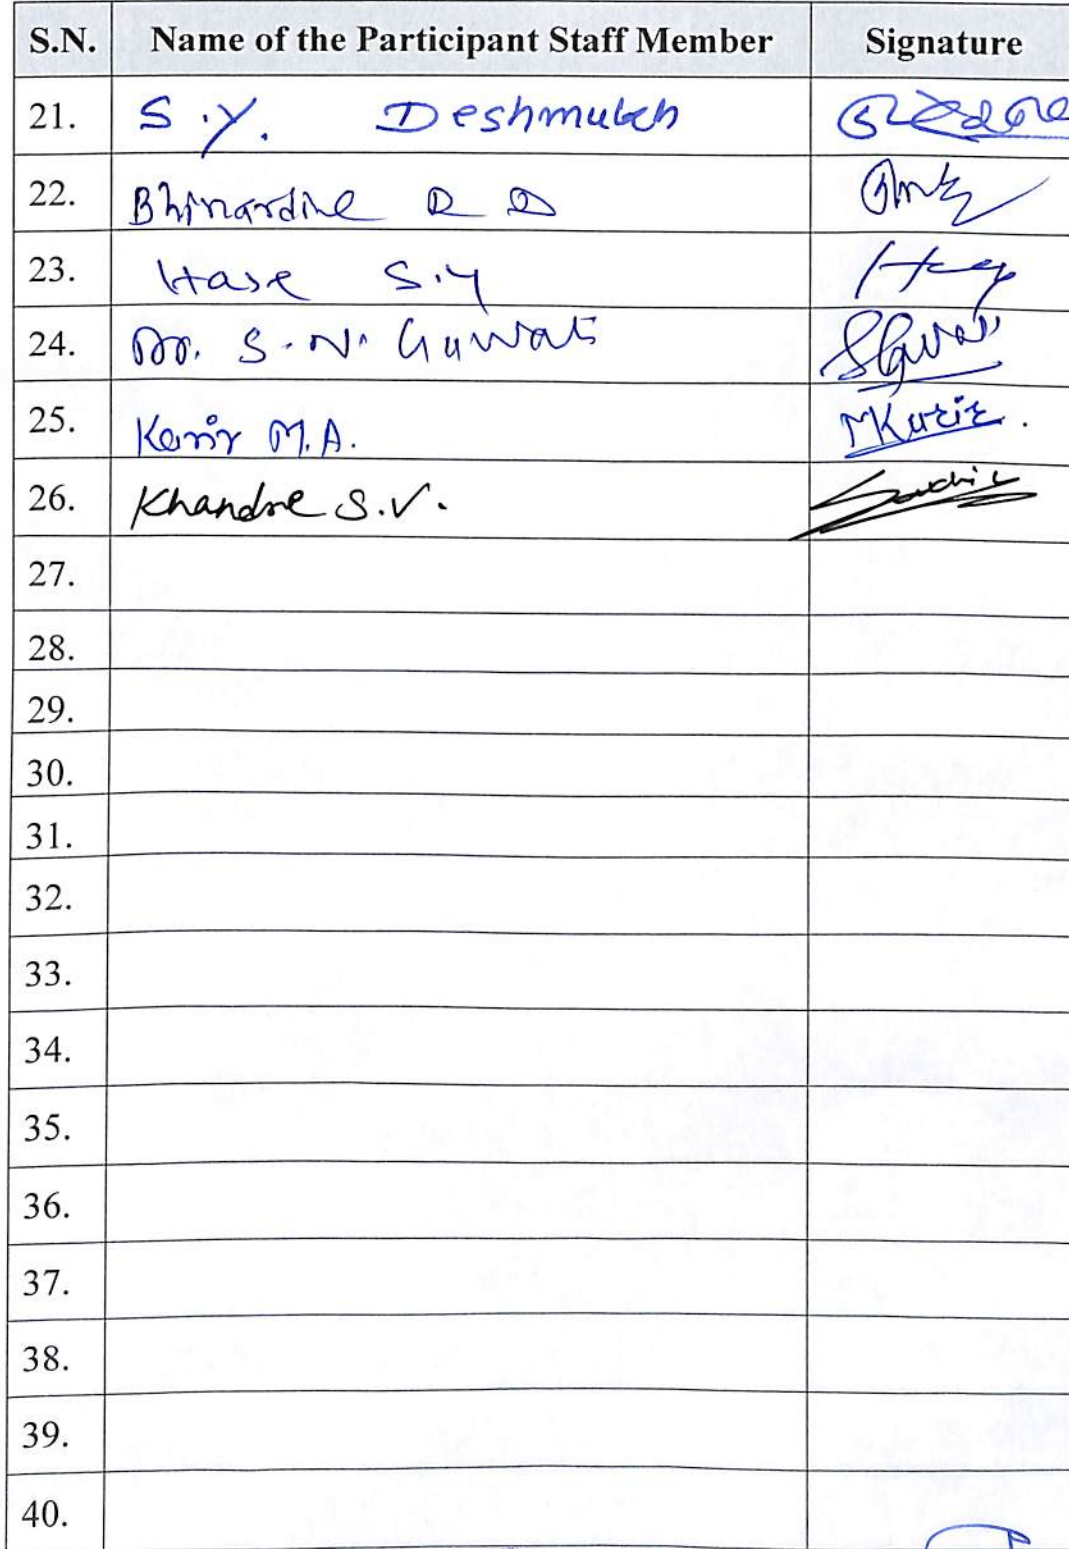 S.N. Name of the Participant Staff Member Signature
21. S.Y. Deshmukh
22. R D
23. Hase S.Y
24. Dr. S.N. Gawati
25. M.A. MKuzir.
26. Khandre S.V. Sachin
27.
28.
29.
30.
31.
32.
33.
34.
35.
36.
37.
38.
39.
40.